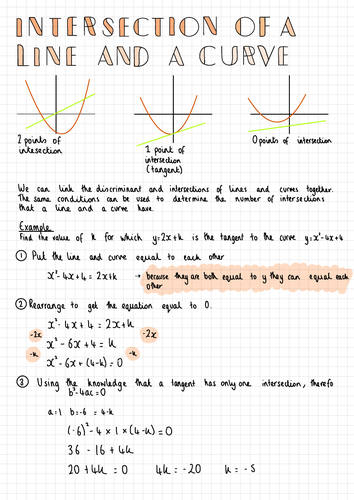 INTERSECTION OF A
LINE AND A CURVE
2 points of
intesection
1 point of
intersection
(tangent)
0 points of intersection
We can link the discriminant and intersections of lines and curves together.
The same conditions can be used to determine the number of intersections
that a line and a curve have.
Example
Find the value of k for which y=2x+k is the tangent to the curve y=x²-4x+4
① Put the line and curve equal to each other
x²-4x+4=2x+k → because they are both equal to y they can equal each
other
② Rearrange to get the equation equal to 0.
x²-4x+4=2x+k
-2x -2x
x²-6x+4=k
-k -k
x²-6x+(4-k)=0
③ Using the knowledge that a tangent has only one intersection, therefo
b²-4ac=0
a=1 b=-6 =4-k
(-6)²-4×1×(4-k)=0
36-16+4k
20+4k=0 4k=-20 k=-5